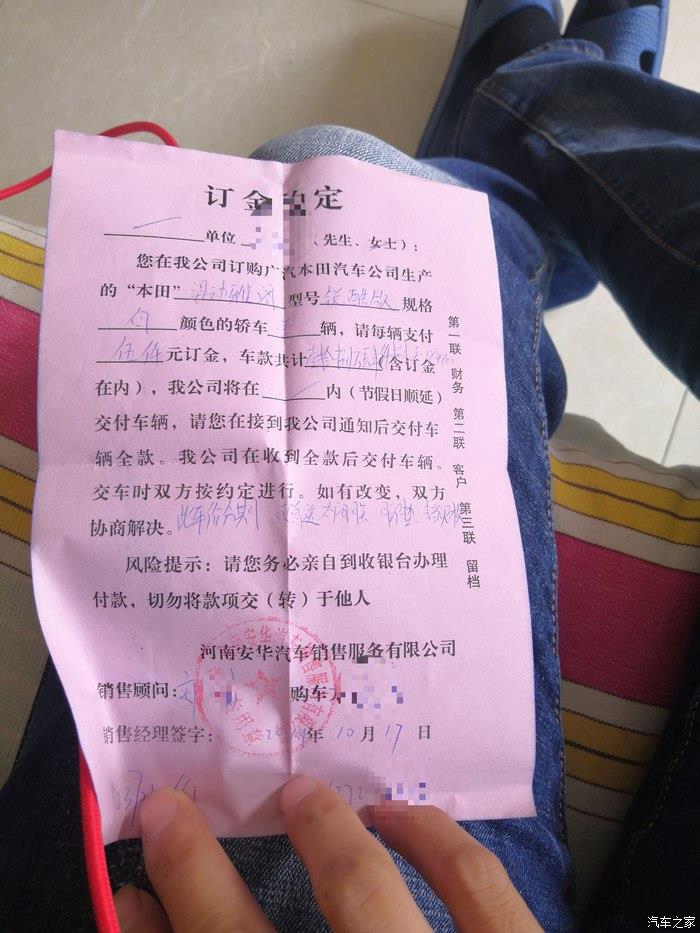 订金约定
单位 (先生、女士):
您在我公司订购广汽本田汽车公司生产
的“本田” 混动雅阁 型号 锐酷版 规格
白 颜色的轿车 辆,请每辆支付
伍仟 元订金,车款共计 (含订金
在内),我公司将在 内(节假日顺延)
交付车辆,请您在接到我公司通知后交付车
辆全款。我公司在收到全款后交付车辆。
交车时双方按约定进行。如有改变,双方
协商解决。
风险提示:请您务必亲自到收银台办理
付款,切勿将款项交(转)于他人
河南安华汽车销售服务有限公司
销售顾问: 购车人
销售经理签字: 年 10 月 17 日
第一联 财务 第二联 客户 第三联 留档
汽车之家